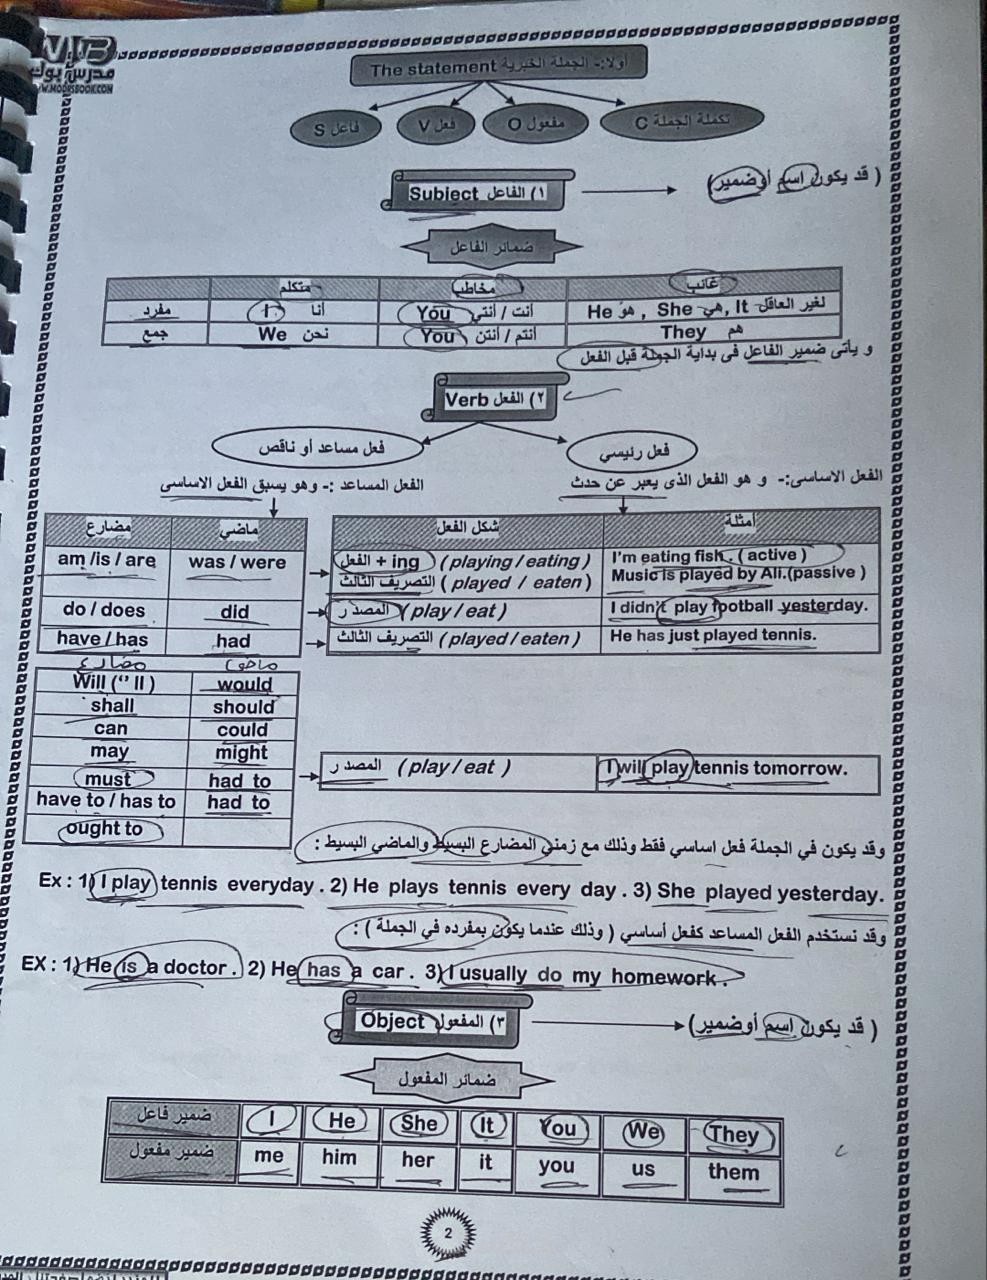 مدرس بوك
WWW.MODRSBOOK.COM
أولا:- الجملة الخبرية The statement
فاعل S
فعل V
مفعول O
تكملة الجملة C
١) الفاعل Subject
( قد يكون اسم أوضمير)
ضمائر الفاعل
غائب مخاطب متكلم
لغير العاقل He هو , She هي, It أنت / أنتي You أنا I مفرد
هم They أنتم / أنتن You نحن We جمع
و يأتى ضمير الفاعل فى بداية الجملة قبل الفعل
٢) الفعل Verb
فعل رئيسي
فعل مساعد أو ناقص
الفعل الاساسى:- و هو الفعل الذى يعبر عن حدث
الفعل المساعد :- وهو يسبق الفعل الاساسى
مضارع ماضي شكل الفعل أمثلة
am /is / are was / were الفعل + ing ( playing / eating ) I'm eating fish . ( active )
التصريف الثالث ( played / eaten ) Music is played by Ali.(passive )
do / does did المصدر ( play / eat ) I didn't play football yesterday.
have / has had التصريف الثالث ( played / eaten ) He has just played tennis.
مضارع ماضي
Will (‘’ ll ) would
shall should
can could
may might
must had to المصدر ( play / eat ) I will play tennis tomorrow.
have to / has to had to
ought to
وقد يكون في الجملة فعل اساسي فقط وذلك مع زمنى المضارع البسيط والماضي البسيط :
Ex : 1) I play tennis everyday . 2) He plays tennis every day . 3) She played yesterday.
وقد نستخدم الفعل المساعد كفعل أساسي ( وذلك عندما يكون بمفرده في الجملة ) :
EX : 1) He is a doctor . 2) He has a car . 3) I usually do my homework .
٣) المفعول Object
( قد يكون اسم أوضمير)
ضمائر المفعول
ضمير فاعل I He She It You We They
ضمير مفعول me him her it you us them
2